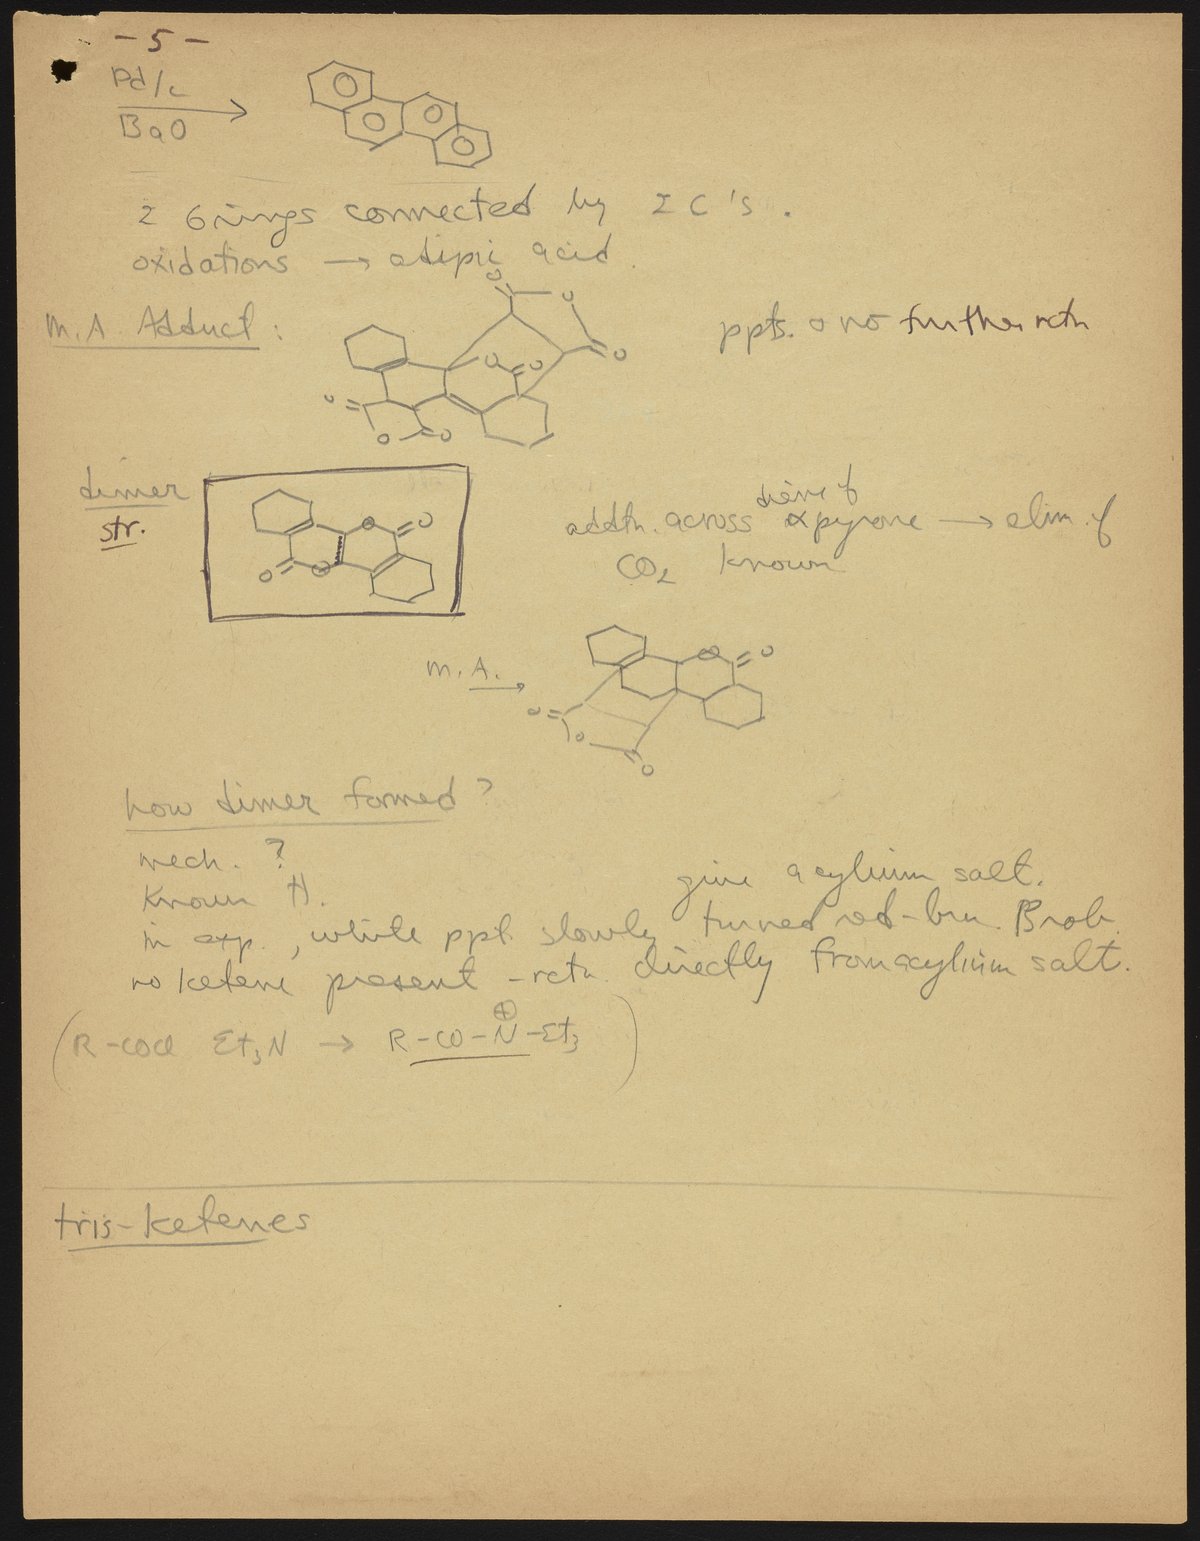 - 5 -
Pd/c
BaO
2 6 rings connected by 2 C's.
oxidations → adipic acid.
M.A. Adduct:
ppts. no further rctn
O
O
O
O
O
O
O
O
dimer
str.
O
O
O
O
diene of
addtn. across α pyrone → elim. of
CO2 known
M.A. →
O
O
O
O
O
how dimer formed?
mech. ?
known H.
give acylium salt.
in exp., white ppt. slowly turned red-brn. Prob.
no ketene present - rctn directly from acylium salt.
(R-COCl Et3N → R-CO-N⊕-Et3)
tris-ketenes